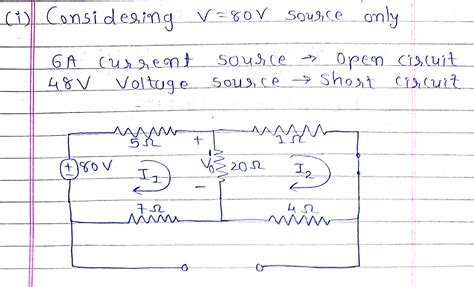 (i) Considering V=80V source only
6A current source → Open circuit
48V Voltage source → Short circuit
5Ω + 1Ω
+ 80V I1 V0 20Ω I2
-
7Ω 4Ω